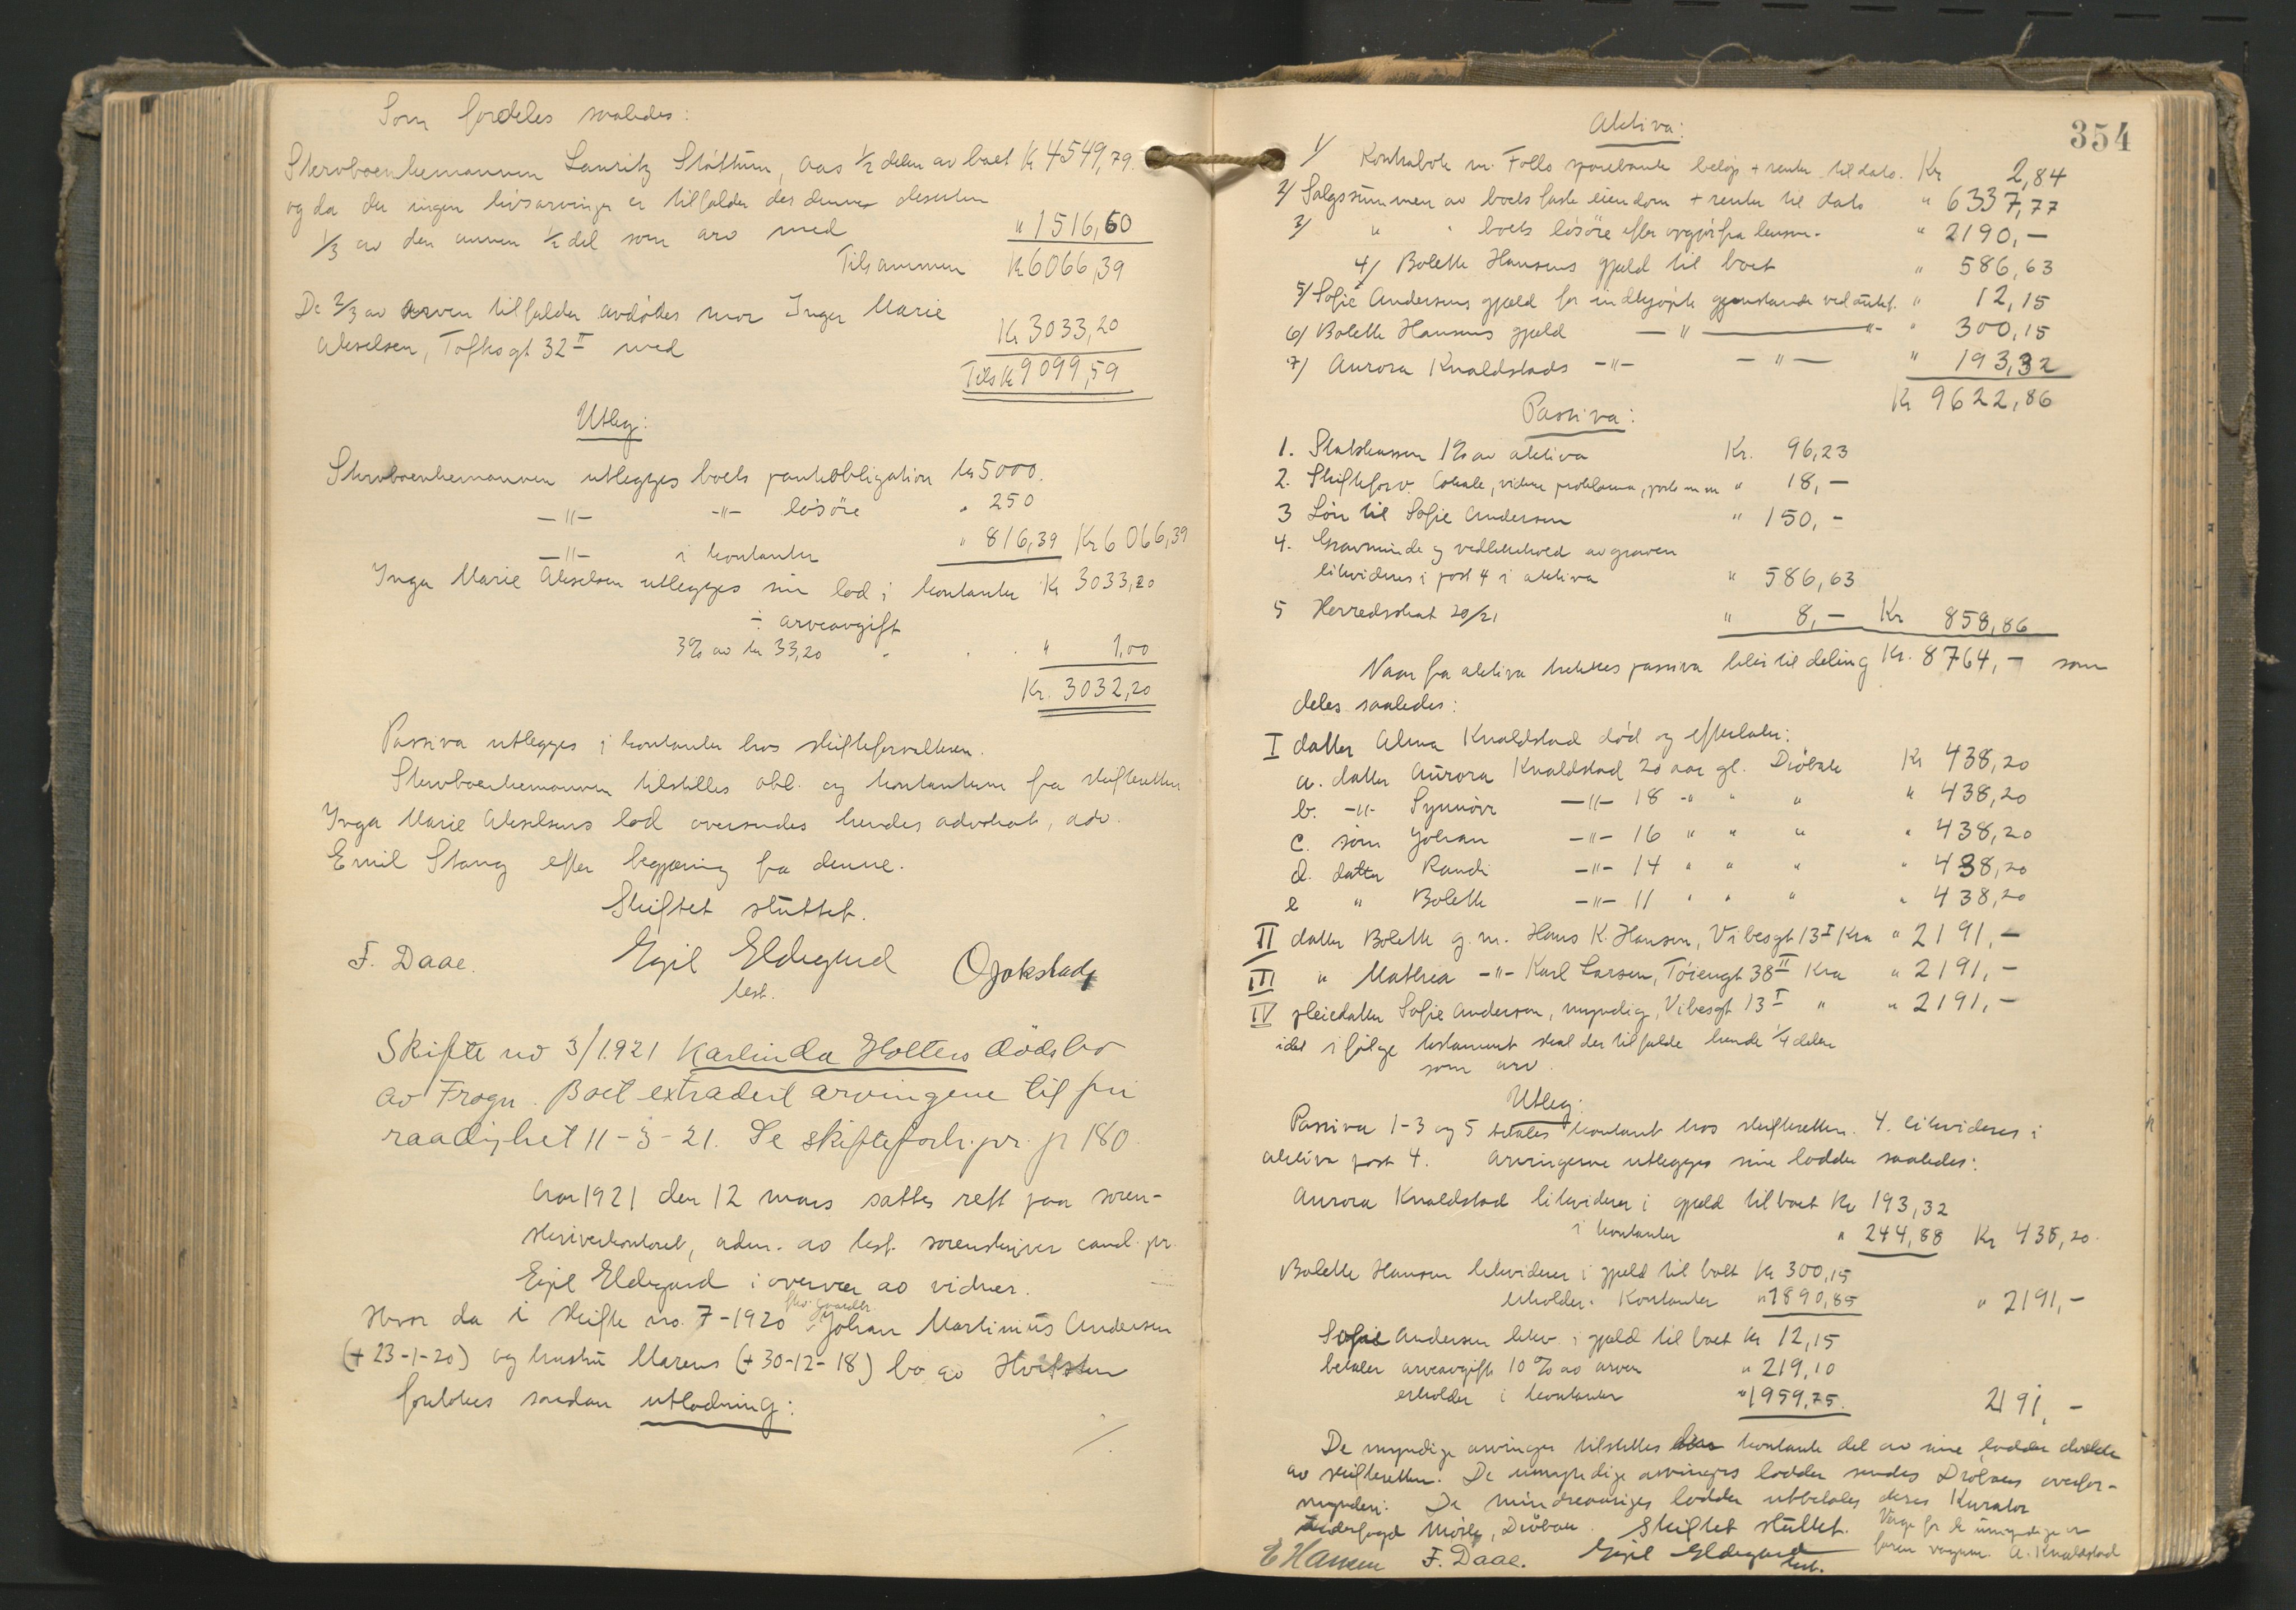 Som fordeles saaledes:
Skervboenkemannen Lauritz Støttum, Aas ½ delen av boet Kr 4549,79.
og da der ingen livsarvinger er tilfalder der denne desuten
⅓ av den annen ½ del som arv med " 1516,60
Tilsammen Kr 6066,39
De ⅔ av arven tilfalder avdødes mor Inga Marie
Akselsen, Toftesgt 32 II med Kr 3033,20
Tils Kr 9099,59
Utleg:
Skervboenkemannen utlegges boets pantobligation kr 5000.
—"— -"- løsøre " 250
—"— i kontanter " 816,39 Kr 6066,39
Inga Marie Akselsen utlegges sin lod i kontanter Kr 3033,20
÷ arveavgift
3% av kr 33,20 " 1,00
Kr. 3032,20
Passiva utlegges i kontanter hos skifteforvalteren.
Skervboenkemannen tilstilles obl. og kontanterne fra skifteretten
Inga Marie Akselsens lod oversendes hendes advokat, adv.
Emil Stang efter begjæring fra denne.
Skiftet sluttet.
F. Daae. Egil Eldegard OJokstad
test.
Skifte no 3/1921 Karlinda Holters dødsbo
av Frogn. Boet extradert arvingene til fri
raadighet 11-3-21. Se skifteforh. pr. p 180.
Aar 1921 den 12 mars sattes rett paa soren-
skriverkontoret, adm. av test. sorenskriver cand. jur.
Egil Eldegard i overvær av vidner.
Hvor da i skifte no. 7-1920 fhv. gaardbr. Johan Martinius Andersen
(+ 23-1-20) og hustru Marens (+ 30-12-18) bo av Hvitsten
foretokes saadan utlodning:
./.
354
Aktiva:
1/ Kontrabok m. Follo sparebank beløp + renter til dato. Kr 2,84
2/ Salgssummen av boets faste eiendom + renter til dato " 6337,77
3/ " " boets løsøre efter opgjør fra lensm. " 2190,—
4/ Bolette Hansens gjæld til boet " 586,63
5/ Sofie Andersens gjæld for indkjøpte gjenstande ved aukt. " 12,15
6/ Bolette Hansens gjæld —"— —"— " 300,15
7/ Aurora Knaldstads —"— —"— " 193,32
Kr 9622,86
Passiva:
1. Statskassen 1% av aktiva Kr. 96,23
2. Skifteforv. lokale, vidner proklama, porto m m " 18,—
3 Løn til Sofie Andersen " 150,-
4. Gravminde og vedlikehold av graven
likvideres i post 4 i aktiva " 586,63
5 Herredsskat 20/21 " 8,— Kr 858,86
Naar fra aktiva trekkes passiva blir til deling Kr. 8764,— som
deles saaledes:
I datter Alma Knaldstad død og efterlater:
a. datter Aurora Knaldstad 20 aar gl. Drøbak Kr 438,20
b. -"- Synnøve —"— 18 " " " " 438,20
c. søn Johan —"— 16 " " " " 438,20
d. datter Randi —"— 14 " " " " 438,20
e " Bolette —"— 11 " " " " 438,20
II datter Bolette g. m. Hans K. Hansen, Vibesgt 13 I Kra " 2191,—
III " Mathea —"— Karl Larsen, Tøiengt 38 II Kra " 2191,—
IV pleiedatter Sofie Andersen, myndig, Vibesgt 13 I " " 2191,—
idet ifølge testament skal der tilfalde hende ¼ delen
som arv.
Utleg:
Passiva 1-3 og 5 betales kontant hos skifteretten. 4. likvideres i
aktiva post 4. Arvingerne utlegges sine lodder saaledes:
Aurora Knaldstad likviderer i gjæld til boet Kr 193,32
i kontanter " 244,88 Kr 438,20
Bolette Hansen likviderer i gjæld til boet Kr 300,15
erholder kontanter " 1890,85 " 2191,—
Sofie Andersen likv. i gjæld til boet Kr 12,15
betaler arveavgift 10% av arven " 219,10
erholder i kontanter " 1959,75. 2191,—
De myndige arvinger tilstilles den kontante del av sine lodder
av skifteretten. De umyndige arvingers lodder sendes Drøbaks overfor-
mynderi. De mindreaariges lodder utbetales deres Kurator
Mørk, Drøbak. Skiftet sluttet. Verge for de umyndige er
faren A. Knaldstad
E Hansen F. Daae. Egil Eldegard
test.